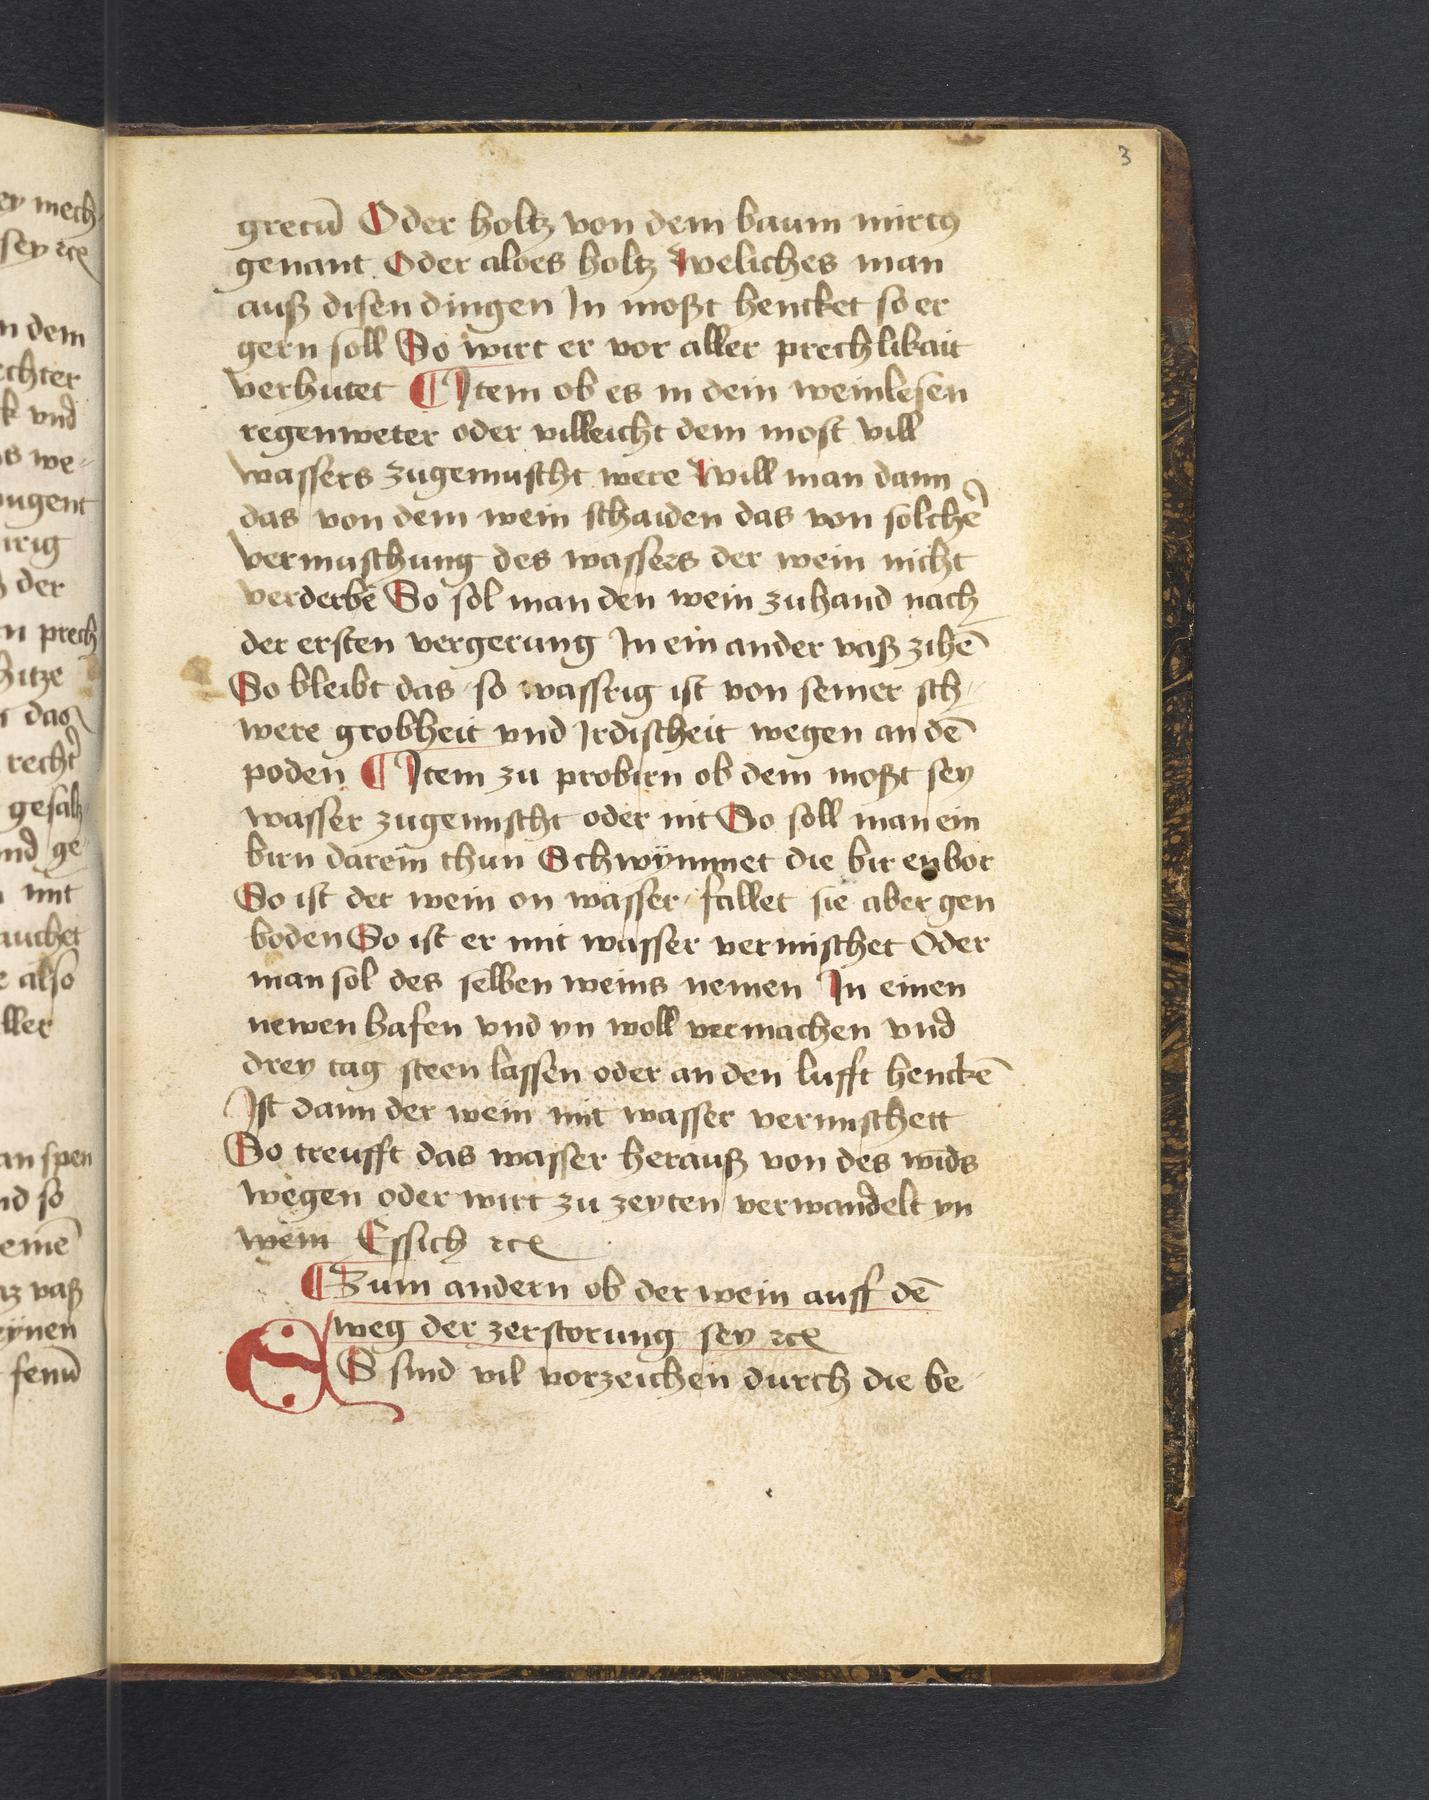 3
grecū Oder holtz von dem baum mirtꝯ
genant Oder aloes holtz Weliches man
auß disen dingen In moßt hencket so er
gern soll So wirt er vor aller prechlikait
verhutet ¶ Item ob es in dein weinlesen
regenweter oder villeicht dem most vill
wassers zugemuscht were Will man dann
das von dem wein schaiden das von solchē
vermuschung des wassers der wein nicht
verderbē So sol man den wein zuhand nach
der ersten vergerung In ein ander vaß zihē
So bleibt das so wassrig ist von seiner sch-
were grobheit vnd Irdischeit wegen an dē
poden ¶ Item zu probirn ob dem moßt sey
wasser zugemischt oder nit So soll man ein
birn darein thun Schwÿmmet die bir enbor
So ist der wein on wasser fallet sie aber gen
boden So ist er mit wasser vermischet Oder
man sol des selben weins nemen In einen
newen hafen vnd yn woll vermachen vnd
drey tag steen lassen oder an den lufft henckē
Ist dann der wein mit wasser vermischett
So treufft das wasser herauß von des winds
wegen oder wirt zu zeyten verwandelt yn
wein Essich ꝛcꝭ
¶ Zum andern ob der wein auff dē
weg der zerstorung sey ꝛcꝭ
ES sind vil vorzeichen durch die be